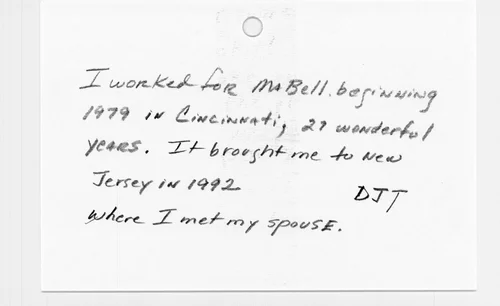 I worked for MaBell. beginning
1979 in Cincinnati, 27 wonderful
years. It brought me to New
Jersey in 1992
DJT
where I met my spouse.